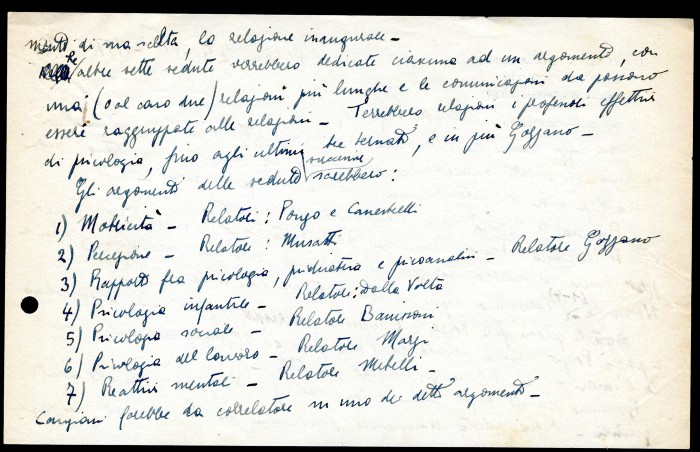 mento di sua scelta, la relazione inaugurale -
Le altre sette sedute verrebbero dedicate ciascuna ad un argomento, con
una (o al caso due) relazioni più lunghe e le comunicazioni da possono
essere raggruppate alle relazioni - Terrebbero relazioni i professori effettivi
di psicologia, fino agli ultimi tre ternati, e in più Gozzano -
Gli argomenti delle successive sedute sarebbero:
1) Motricità - Relatori: Ponzo e Canestrelli
2) Percezione - Relatori: Musatti
3) Rapporti fra psicologia, psichiatria e psicoanalisi - Relatore Gozzano
4) Psicologia infantile - Relatori: Dalla Volta
5) Psicologia sociale - Relatore Banissoni
6) Psicologia del lavoro - Relatore Marzi
7) Reattivi mentali - Relatore Metelli -
Cangiani farebbe da correlatore in uno dei detti argomenti -